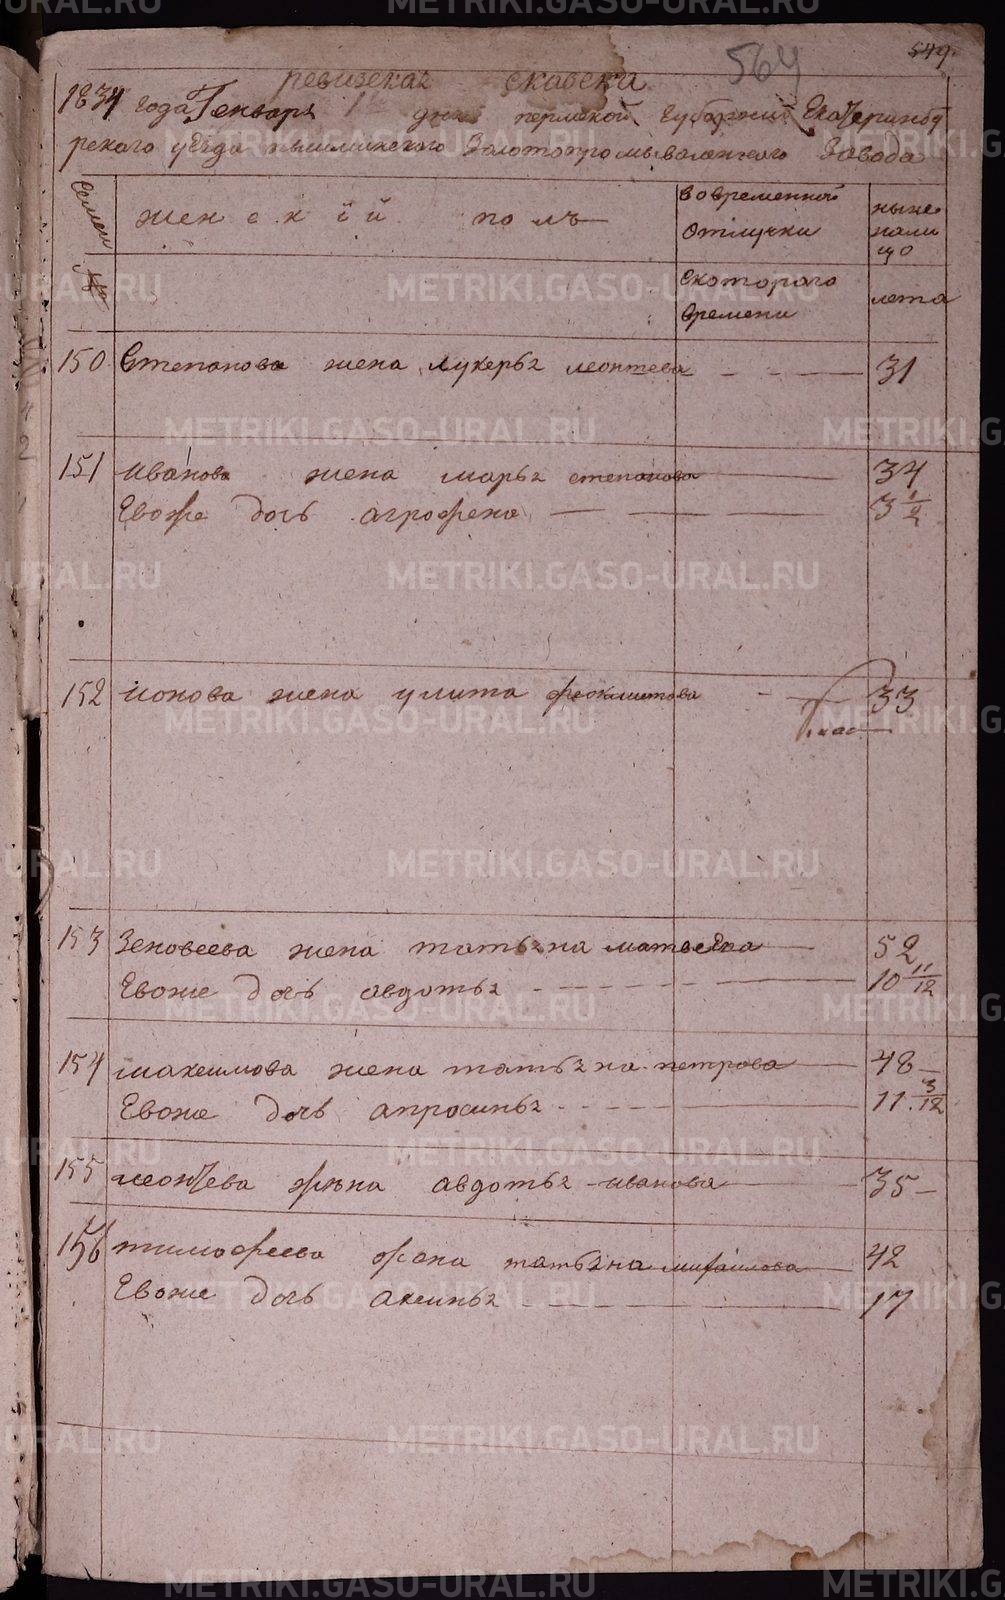 549
564
ревизская скаски
1834 года Генваря 1 дня пермской губернии Екатеринбу
рского уезда пышминского Золотопромываленного Завода
Семеи №
женский полъ
во временной отлучки
ныне налицо
скоторого времени
лета
150 Степанова жена лукерья леонтева 31
151 Иванова жена марья степанова 34
Евоже дочь агрофена 3 1/2
152 ионова жена улита феоклистова 33
153 Зеновеева жена татьяна матвеева 52
Евоже дочь авдотья 10 11/12
154 максимова жена татьяна петрова 48
Евоже дочь апросинья 11 3/12
155 леонтева жена авдотья иванова 35
156 тимофеева жена татьяна михаилова 42
Евоже дочь аксинья 17
METRIKI.GASO-URAL.RU